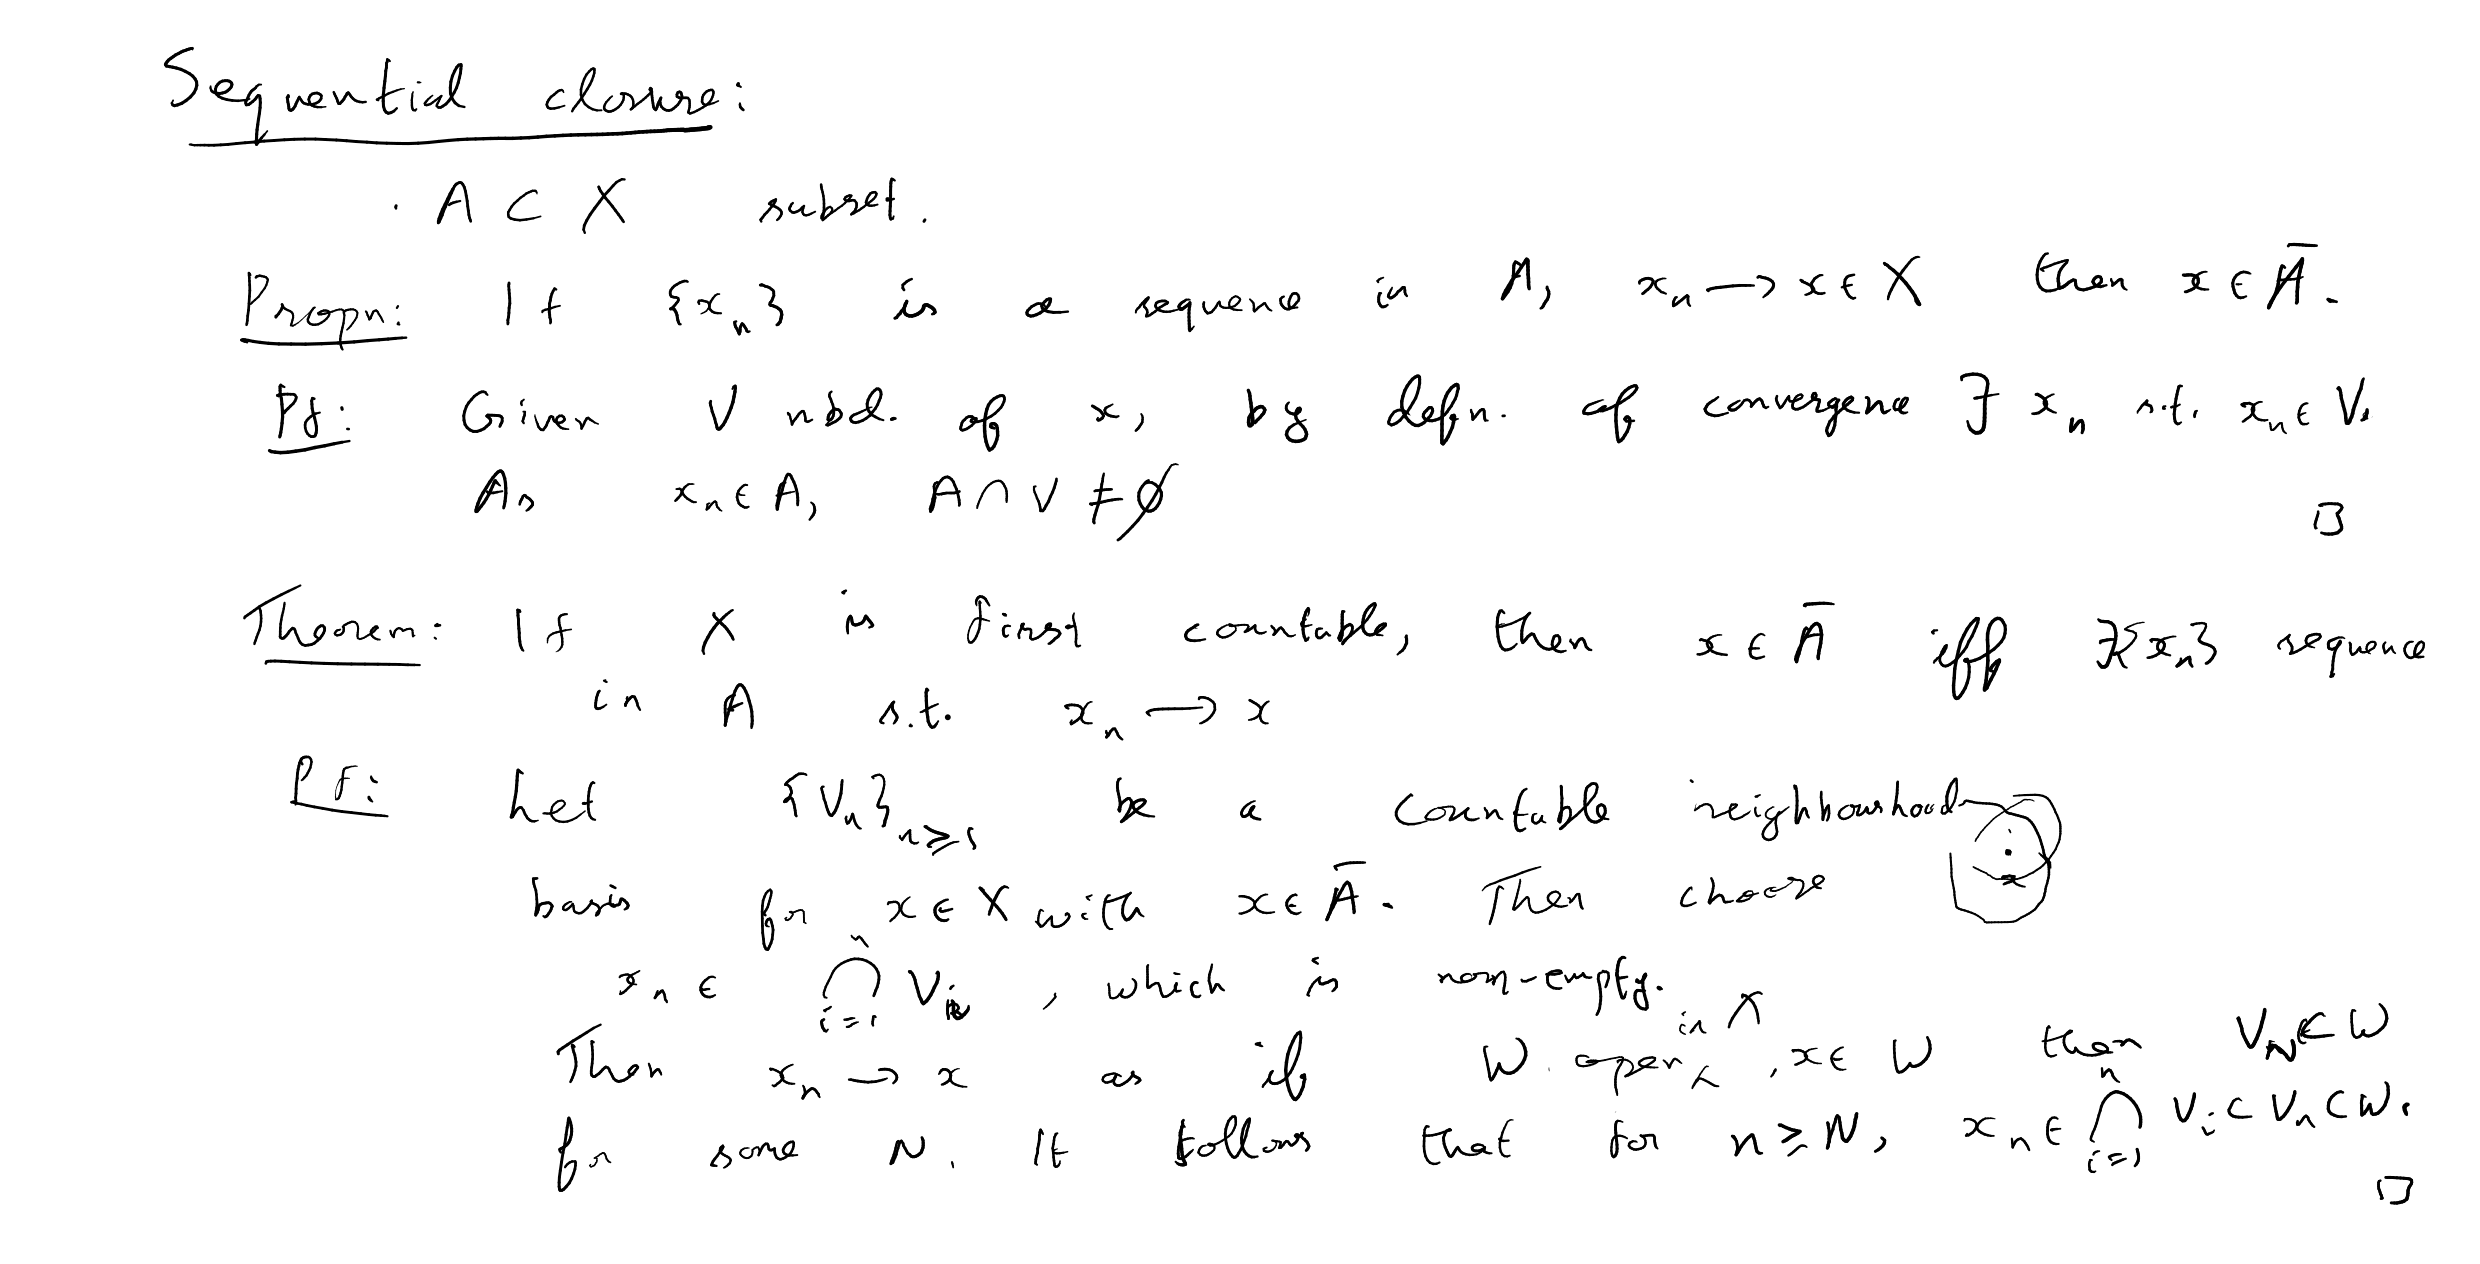 Sequential closure:
· A ⊂ X subset.
Propn: If {xₙ} is a sequence in A, xₙ → x ∈ X then x ∈ A̅.
Pf: Given V nbd. of x, by defn. of convergence ∃ xₙ s.t. xₙ ∈ V.
As xₙ ∈ A, A ∩ V ≠ ∅ □
Theorem: If X is first countable, then x ∈ A̅ iff ∃ {xₙ} sequence
in A s.t. xₙ → x
Pf: Let {Vₙ}ₙ≥₁ be a countable neighbourhood
basis for x ∈ X with x ∈ A̅. Then choose
xₙ ∈ ⋂ᵢ₌₁ⁿ Vᵢ, which is non-empty.
Then xₙ → x as if W open in X, x ∈ W then V_N ⊂ W
for some N. It follows that for n ≥ N, xₙ ∈ ⋂ᵢ₌₁ⁿ Vᵢ ⊂ Vₙ ⊂ W.
□